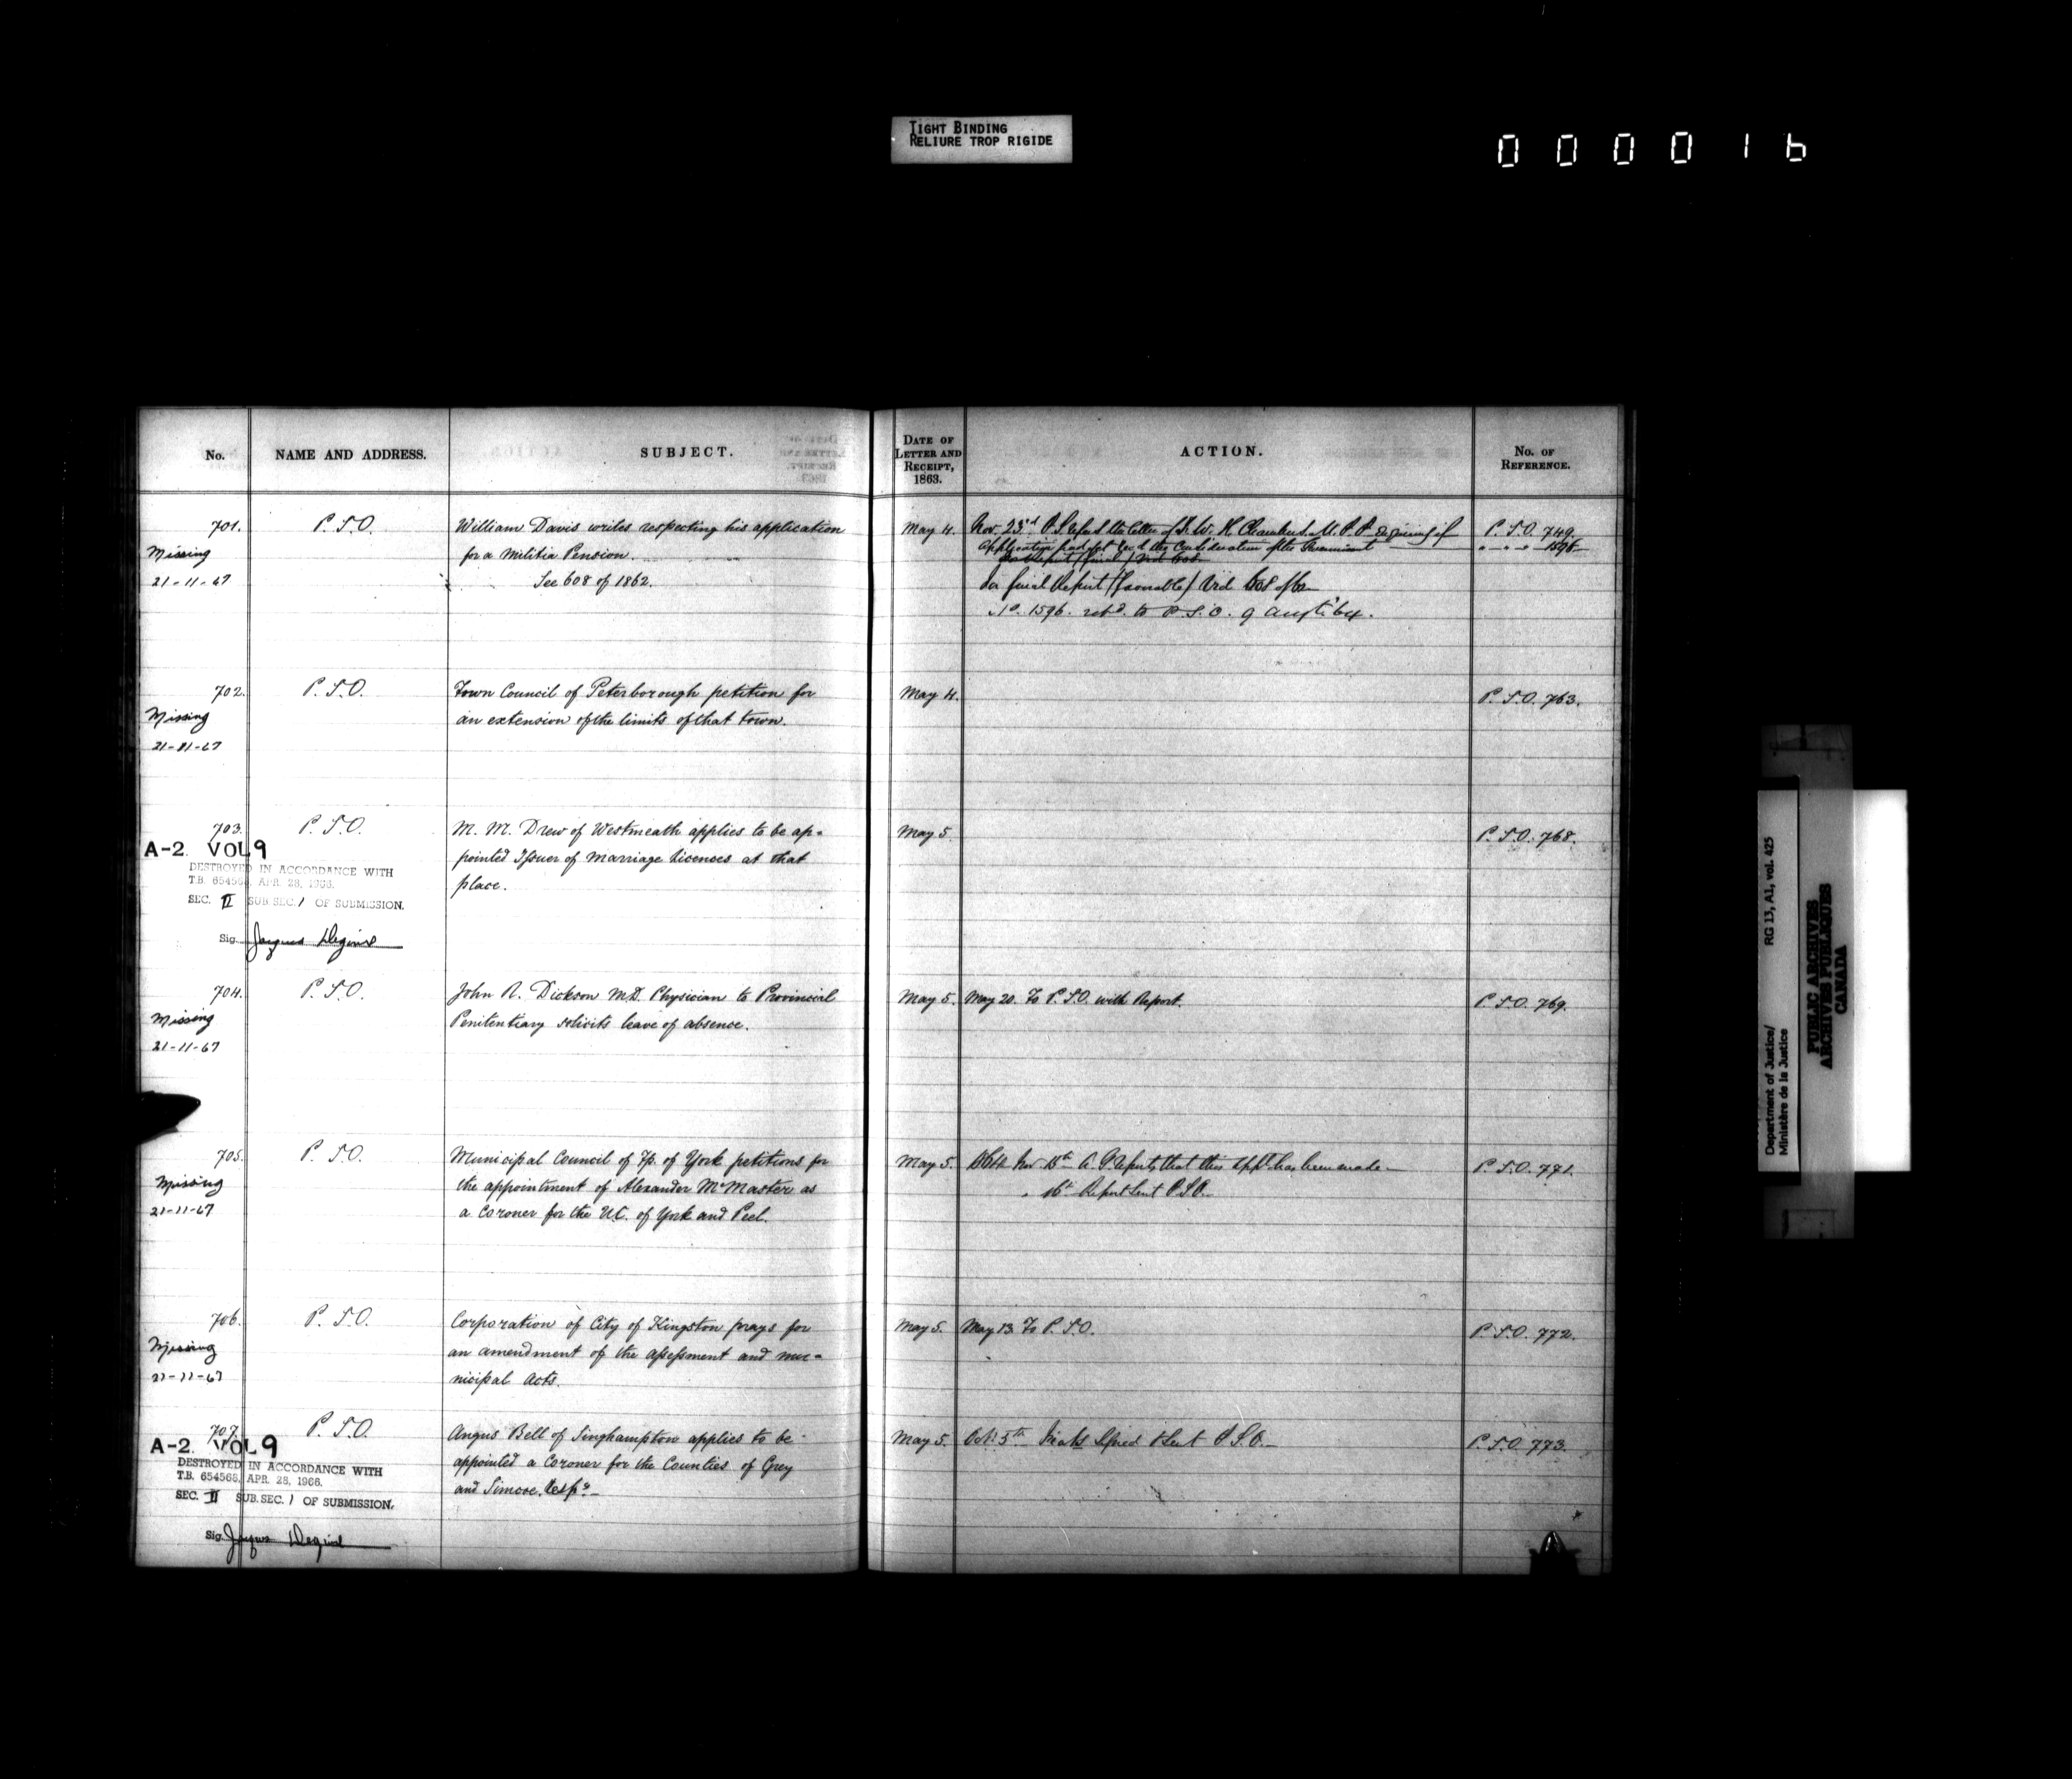 TIGHT BINDING
RELIURE TROP RIGIDE
000016
No.
NAME AND ADDRESS.
SUBJECT.
DATE OF LETTER AND RECEIPT, 1863.
ACTION.
No. OF REFERENCE.
701.
Missing
21-11-67
P.S.O.
William Davis writes respecting his application
for a Militia Pension.
See 608 of 1862.
May 4.
Nov. 23rd P.S. the letter of W. H. M.P.P.
Application the Consideration of the Government
final Report (favorable) Vid 608 of 62
No. 1596. retd. to P.S.O. 9 Augt. 64.
P.S.O. 749.
" " " 1596
702.
Missing
21-11-67
P.S.O.
Town Council of Peterborough petition for
an extension of the limits of that town.
May 4.
P.S.O. 763.
703.
A-2. VOL 9
DESTROYED IN ACCORDANCE WITH
T.B. 654568, APR. 28, 1966.
SEC. II SUB.SEC. 1 OF SUBMISSION.
Sig. Jacques
P.S.O.
M. M. Drew of Westmeath applies to be ap=
pointed Issuer of Marriage Licences at that
place.
May 5
P.S.O. 768.
704.
Missing
21-11-67
P.S.O.
John R. Dickson M.D. Physician to Provincial
Penitentiary solicits leave of absence.
May 5.
May 20. To P.S.O. with Report.
P.S.O. 769.
705.
Missing
21-11-67
P.S.O.
Municipal Council of Tp. of York petitions for
the appointment of Alexander McMaster as
a Coroner for the U.C. of York and Peel.
May 5.
1864 Nov 15th A.G. reports that this appt. has been made
" 16th Report sent P.S.O.
P.S.O. 771.
706.
Missing
21-11-67
P.S.O.
Corporation of City of Kingston prays for
an amendment of the assessment and mu=
nicipal Acts.
May 5.
May 13 To P.S.O.
P.S.O. 772.
707.
A-2. VOL 9
DESTROYED IN ACCORDANCE WITH
T.B. 654568, APR. 28, 1966.
SEC. II SUB.SEC. 1 OF SUBMISSION.
Sig. Jacques
P.S.O.
Angus Bell of Singhampton applies to be
appointed a Coroner for the Counties of Grey
and Simcoe. Resp.
May 5.
Oct. 5th signed & sent P.S.O.
P.S.O. 773.
Department of Justice/
Ministère de la Justice
RG 13, A1, vol. 425
PUBLIC ARCHIVES
ARCHIVES PUBLIQUES
CANADA